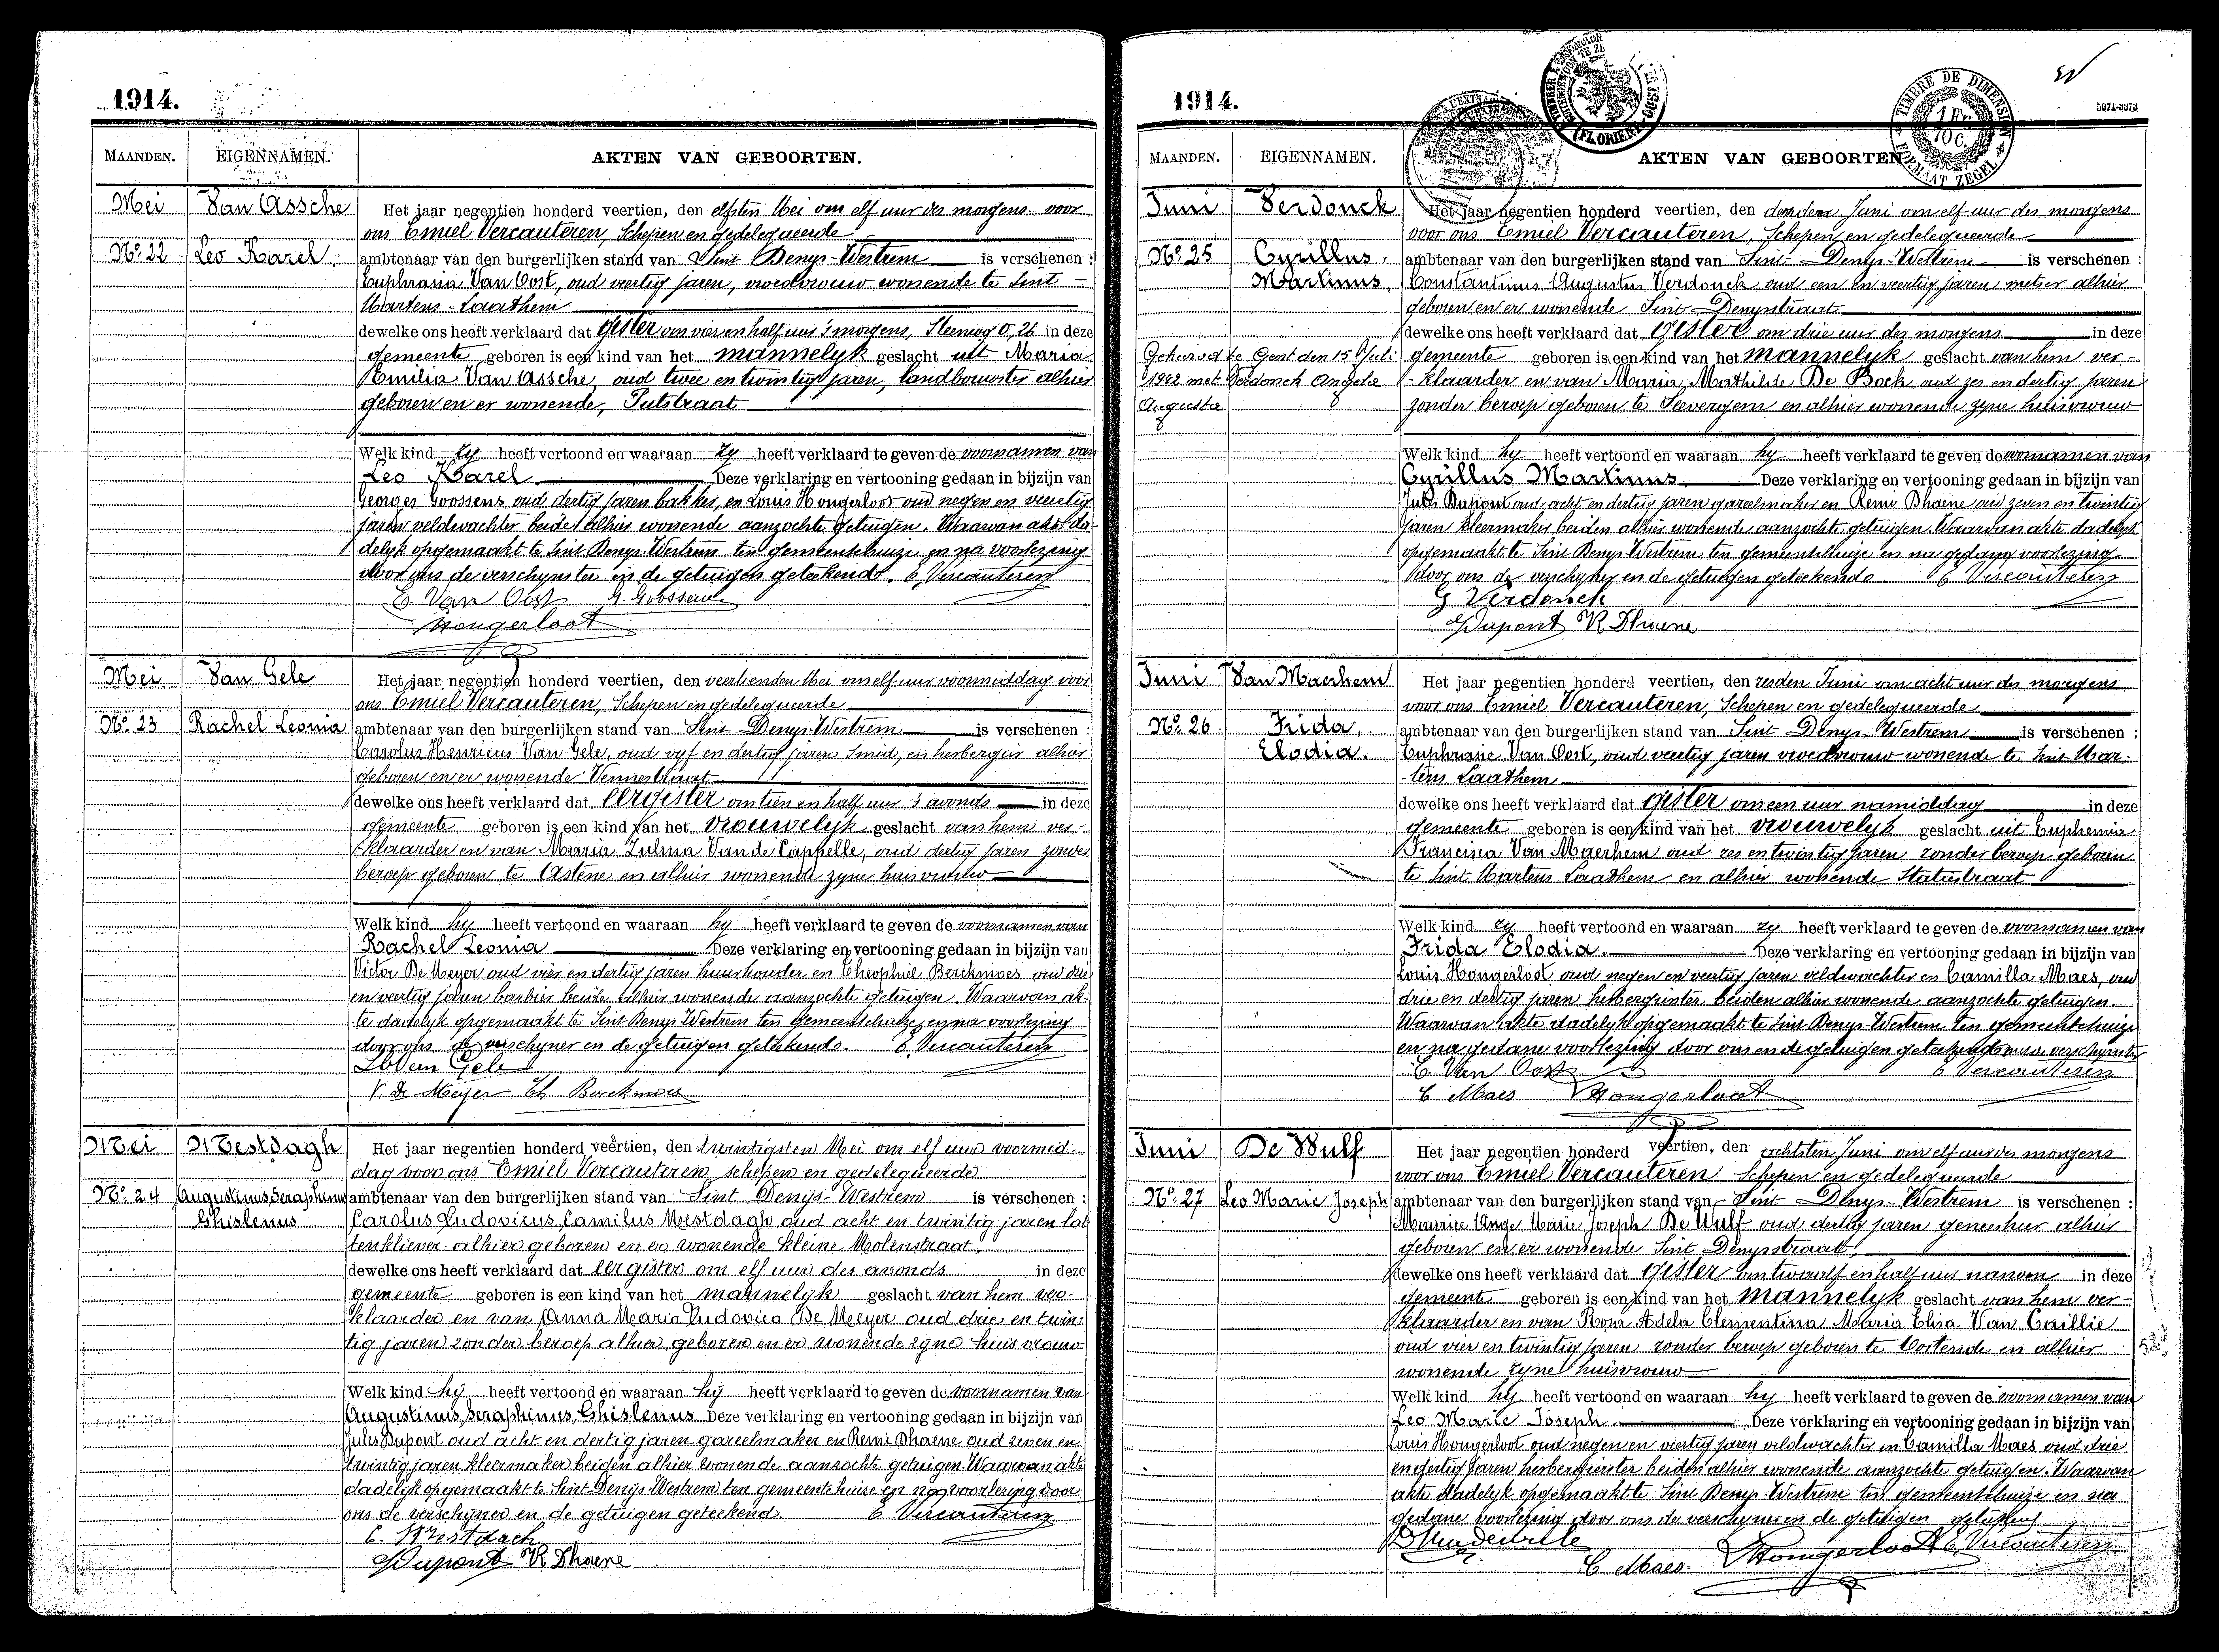 1914.
MAANDEN. EIGENNAMEN. AKTEN VAN GEBOORTEN.
Mei Van Assche Het jaar negentien honderd veertien, den elfsten Mei om elf uur des morgens voor
ons Emiel Vercauteren, Schepen en gedelegueerde
No. 22 Leo Karel. ambtenaar van den burgerlijken stand van Sint Denys-Westrem is verschenen :
Euphrasia Van Oost, oud veertig jaren, vroedvrouw wonende te Sint-
Martens-Laathem
dewelke ons heeft verklaard dat gister om vier en half uur 's morgens, Steenweg 0,26 in deze
gemeente geboren is een kind van het mannelyk geslacht uit Maria
Emilia Van Assche, oud twee en twintig jaren, landbouwster alhier
geboren en er wonende, Putstraat
Welk kind zy heeft vertoond en waaraan zy heeft verklaard te geven de voornamen van
Leo Karel Deze verklaring en vertooning gedaan in bijzijn van
Georges Goossens oud dertig jaren bakker, en Louis Hongerloot oud negen en veertig
jaren veldwachter beide alhier wonende aanzochte getuigen. Waarvan akte da-
delyk opgemaakt te Sint Denys-Westrem ten gemeentehuize en na voorlezing
door ons de verschynster en de getuigen geteekend. E. Vercauteren
E. Van Oost G. Goossens
Hongerloot
Mei Van Gele Het jaar negentien honderd veertien, den veertienden Mei om elf uur voormiddag voor
ons Emiel Vercauteren, Schepen en gedelegueerde
No. 23 Rachel Leonia ambtenaar van den burgerlijken stand van Sint Denys-Westrem is verschenen :
Carolus Henricus Van Gele, oud vyf en dertig jaren Smid, en herbergier alhier
geboren en er wonende Vennestraat
dewelke ons heeft verklaard dat eergister om tien en half uur 's avonds in deze
gemeente geboren is een kind van het vrouwelyk geslacht van hem ver-
klaarder en van Maria Zulma Van de Cappelle, oud dertig jaren zonder
beroep geboren te Astene en alhier wonende zyne huisvrouw
Welk kind hy heeft vertoond en waaraan hy heeft verklaard te geven de voornamen van
Rachel Leonia Deze verklaring en vertooning gedaan in bijzijn van
Victor De Meyer oud vier en dertig jaren huurhouder en Theophiel Berckmoes oud drie
en veertig jaren barbier beide alhier wonende aanzochte getuigen. Waarvan ak-
te dadelyk opgemaakt te Sint-Denys Westrem ten gemeentehuize, en na voorlezing
door ons de verschyner en de getuigen geteekend. E. Vercauteren
Van Gele
V. De Meyer Th Berckmoes
Mei Mestdagh Het jaar negentien honderd veertien, den twintigsten Mei om elf uur voormid-
dag voor ons Emiel Vercauteren schepen en gedelegueerde
No. 24 Augustinus, Seraphinus ambtenaar van den burgerlijken stand van Sint Denijs-Westrem is verschenen :
Ghislenus Carolus Ludovicus Camilus Mestdagh oud acht en twintig jaren lat
tenkliever alhier geboren en er wonende kleine Molenstraat.
dewelke ons heeft verklaard dat eergister om elf uur des avonds in deze
gemeente geboren is een kind van het mannelyk geslacht van hem ver-
klaarder en van Anna Maria Ludovica De Meyer oud drie en twin-
tig jaren zonder beroep alhier geboren en er wonende zijne huisvrouw
Welk kind hij heeft vertoond en waaraan hij heeft verklaard te geven de voornamen van
Augustinus, Seraphinus, Ghislenus Deze verklaring en vertooning gedaan in bijzijn van
Jules Dupont oud acht en dertig jaren gareelmaker en Remi Dhaene oud zeven en
twintig jaren kleermaker beiden alhier wonende aanzochte getuigen. Waarvan akte
dadelijk opgemaakt te Sint Denijs Westrem ten gemeentehuise en na voorlezing door
ons de verschijner en de getuigen geteekend. E. Vercauteren
C. Mestdach
J Dupont R Dhaene
1914. 5971-3373
TIMBRE DE DIMENSION 1 Fr. 10 c. FORMAAT ZEGEL
MAANDEN. EIGENNAMEN. AKTEN VAN GEBOORTEN
Juni Verdonck Het jaar negentien honderd veertien, den derden Juni om elf uur des morgens
voor ons Emiel Vercauteren, Schepen en gedelegueerde
No. 25 Cyrillus, ambtenaar van den burgerlijken stand van Sint Denys-Westrem is verschenen :
Martinus. Constantinus Augustus Verdonck oud een en veertig jaren metser alhier
geboren en er wonende Sint-Denysstraat
dewelke ons heeft verklaard dat gister om drie uur des morgens in deze
Gehuwd te Gent den 15 Juli gemeente geboren is een kind van het mannelyk geslacht van hem ver-
1942 met Verdonck Angele -klaarder en van Maria Mathilde De Bock oud zes en dertig jaren
Augusta zonder beroep geboren te Seevergem en alhier wonende zyne huisvrouw
Welk kind hy heeft vertoond en waaraan hy heeft verklaard te geven de voornamen van
Cyrillus Martinus Deze verklaring en vertooning gedaan in bijzijn van
Jules Dupont oud acht en dertig jaren gareelmaker en Remi Dhaene oud zeven en twintig
jaren kleermaker beiden alhier wonende aanzochte getuigen. Waarvan akte dadelyk
opgemaakt te Sint Denys Westrem ten gemeentehuize en na gedane voorlezing
door ons de verschyner en de getuigen geteekend. E Vercauteren
Verdonck
J Dupont R Dhaene
Juni Van Maerhem Het jaar negentien honderd veertien, den zesden Juni om acht uur des morgens
voor ons Emiel Vercauteren, Schepen en gedelegueerde
No. 26 Frida, ambtenaar van den burgerlijken stand van Sint Denys-Westrem is verschenen :
Elodia. Euphrasie Van Oost, oud veertig jaren vroedvrouw wonende te Sint Mar-
-tens Laathem
dewelke ons heeft verklaard dat gister om een uur namiddag in deze
gemeente geboren is een kind van het vrouwelyk geslacht uit Euphemia
Francisca Van Maerhem oud zes en twintig jaren zonder beroep geboren
te Sint Martens Laathem en alhier wonende Statiestraat
Welk kind zy heeft vertoond en waaraan zy heeft verklaard te geven de voornamen van
Frida Elodia. Deze verklaring en vertooning gedaan in bijzijn van
Louis Hongerloot oud negen en veertig jaren veldwachter en Camilla Maes, oud
drie en dertig jaren herbergierster beiden alhier wonende aanzochte getuigen.
Waarvan akte dadelyk opgemaakt te Sint Denys-Westrem ten gemeentehuize
en na gedane voorlezing door ons en de getuigen geteekend en de verschynster
E. Van Oost E Vercauteren
C Maes Hongerloot
Juni De Wulf Het jaar negentien honderd veertien, den achtsten Juni om elf uur des morgens
voor ons Emiel Vercauteren Schepen en gedelegueerde
No. 27 Leo Marie Joseph ambtenaar van den burgerlijken stand van Sint Denys-Westrem is verschenen :
Maurice Ange Marie Joseph De Wulf oud dertig jaren geneesheer alhier
geboren en er wonende Sint Denysstraat,
dewelke ons heeft verklaard dat gister om twaalf en half uur nanoen in deze
gemeente geboren is een kind van het mannelyk geslacht van hem ver-
klaarder en van Rosa Adela Clementina Maria Elisa Van Caillie
oud vier en twintig jaren zonder beroep geboren te Oostende en alhier
wonende zyne huisvrouw
Welk kind hy heeft vertoond en waaraan hy heeft verklaard te geven de voornamen van
Leo Marie Joseph Deze verklaring en vertooning gedaan in bijzijn van
Louis Hongerloot oud negen en veertig jaren veldwachter en Camilla Maes oud drie
en dertig jaren herbergierster beiden alhier wonende aanzochte getuigen. Waarvan
akte dadelyk opgemaakt te Sint Denys Westrem ten gemeentehuize en na
gedane voorlezing door ons de verschyner en de getuigen geteekend
C Maes. Hongerloot E. Vercauteren